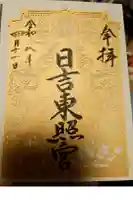 奉拝
日吉東照宮
令和八年
四月十一日